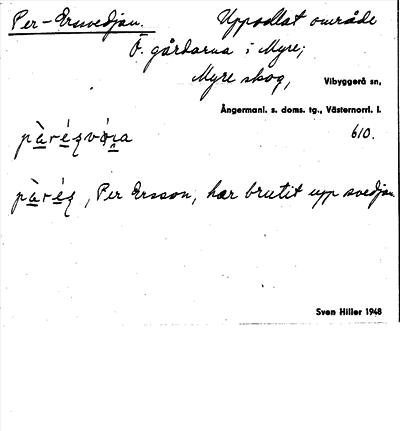 Per-Ersvedjan. Uppodlat område
Ö. gårdarna i Myre;
Myre skog, Vibyggerå sn,
Ångermanl. s. doms. tg., Västernorrl. l.
610.
Per Ersson, har brutit upp svedjan.
Sven Hiller 1948